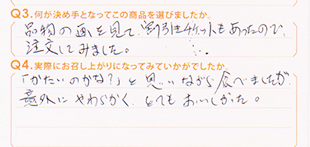 Q3.何が決め手となってこの商品を選びましたか。
品物の画を見て、割引きチケットもあったので、
注文してみました。
Q4.実際にお召し上がりになってみていかがでしたか。
「かたいのかな?」と思いながら食べましたが
意外にやわらかく、とてもおいしかった。